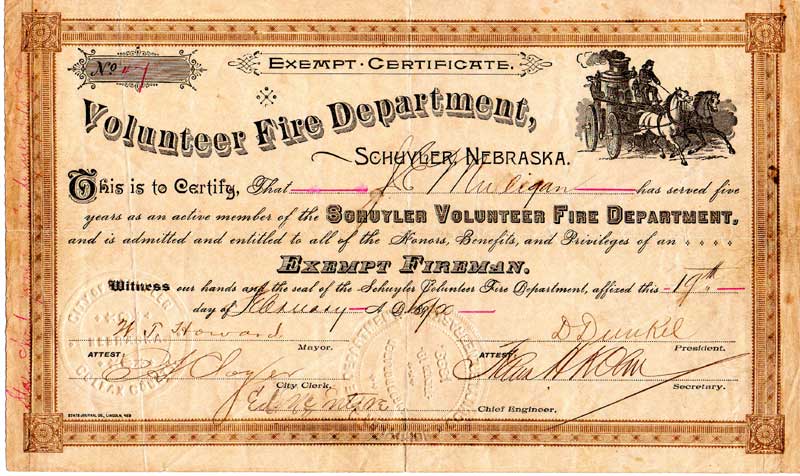 No
EXEMPT · CERTIFICATE.
Volunteer Fire Department,
SCHUYLER, NEBRASKA.
This is to Certify, That J. E. Mulligan has served five
years as an active member of the SCHUYLER VOLUNTEER FIRE DEPARTMENT,
and is admitted and entitled to all of the Honors, Benefits, and Privileges of an
EXEMPT FIREMAN.
Witness our hands and the seal of the Schuyler Volunteer Fire Department, affixed this 19th
day of February A. D.
W. T. Howard
Mayor.
D Dunkel
President.
ATTEST:
City Clerk.
ATTEST:
Secretary.
Chief Engineer.
STATE JOURNAL CO., LINCOLN, NEB
NEBRASKA